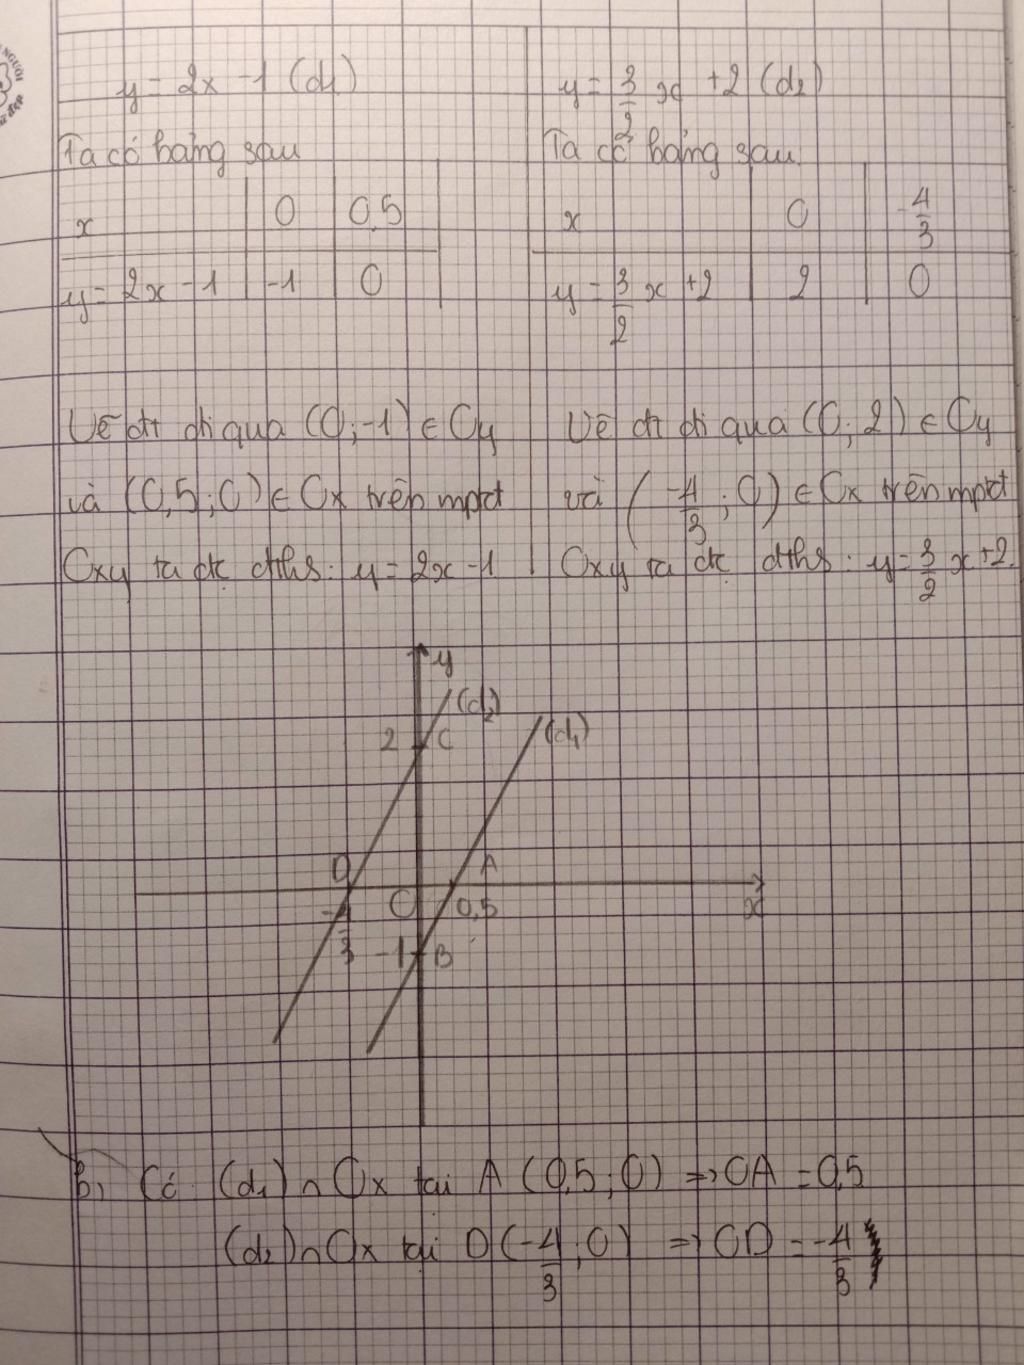 NGƯỜI
y = 2x - 1 (d1)
Ta có bảng sau
x 0 0,5
y = 2x - 1 -1 0
Vẽ đt đi qua (0; -1) ∈ Oy
và (0,5; 0) ∈ Ox trên mptđ
Oxy ta đc đths: y = 2x - 1
y = 3/2 x + 2 (d2)
Ta có bảng sau
x 0 -4/3
y = 3/2 x + 2 2 0
Vẽ đt đi qua (0; 2) ∈ Oy
và (-4/3; 0) ∈ Ox trên mptđ
Oxy ta đc đths: y = 3/2 x + 2.
y
(d2)
2 C (d1)
D A
-4/3 O 0,5 x
-1 B
b, Có (d1) ∩ Ox tại A (0,5; 0) => OA = 0,5
(d2) ∩ Ox tại D (-4/3; 0) => OD = -4/3